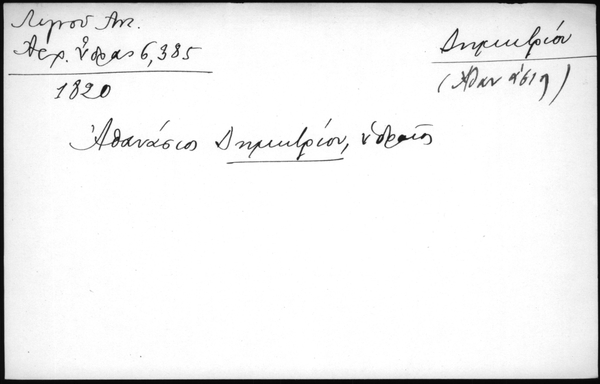 Λιγνού Αντ.
Αρχ. Ύδρας 6,385
1820
Δημητρίου
(Αθανάσιος)
Αθανάσιος Δημητρίου, υδραίος